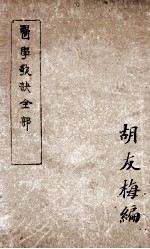 醫學歌訣全部
胡友梅編